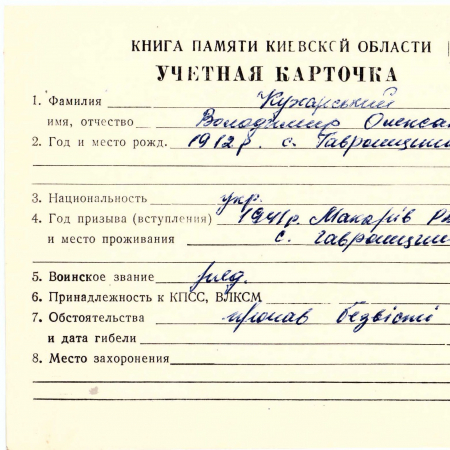 КНИГА ПАМЯТИ КИЕВСКОЙ ОБЛАСТИ
УЧЕТНАЯ КАРТОЧКА
1. Фамилия Кухарський
имя, отчество Володимир Олекса
2. Год и место рожд. 1912р. с. Гавронщин
3. Национальность укр.
4. Год призыва (вступления) 1941р. Макарів
и место проживания с. Гавронщин
5. Воинское звание ряд.
6. Принадлежность к КПСС, ВЛКСМ
7. Обстоятельства пропав безвісті
и дата гибели
8. Место захоронения